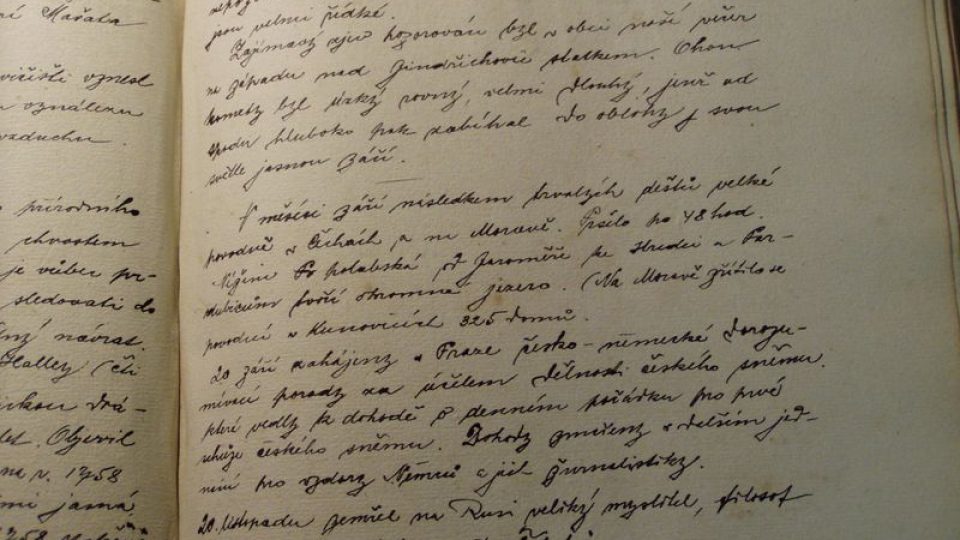 ní Mašata
višti vznesl
vznášenu
vzduchu.
přírodního
chvostem
je vůbec pr-
sledovati do
ný návrat.
Halley (čti
let. Objevil
na v. 1758
mi jasná
jsou velmi řídké.
Zajímavý zjev pozorován byl v obci naší večer
na západu nad Jindřichovic statkem. Ohon
komety byl úzký rovný, velmi dlouhý, jenž od
spodu hluboko pak zabíhal do oblohy s svou
světle jasnou září.
V měsíci září následkem trvalých dešťů velké
povodně v Čechách a na Moravě. Pršelo po 48 hod.
Nížina Polabská od Jaroměře ke Hradci a Par-
dubicům tvoří ohromné jezero. (Na Moravě zřítilo se
povodní v Kunovicích 325 domů.
20 září zahájeny v Praze česko-německé dorozu-
mívací porady za účelem dělnosti českého sněmu.
které vedly k dohodě o denním pořádku pro prvé
schůze českého sněmu. Dohody zmařeny v delším jed-
nání pro vzdory Němců a jich žurnalistiky.
20. listopadu zemřel na Rusi veliký myslitel, filosof